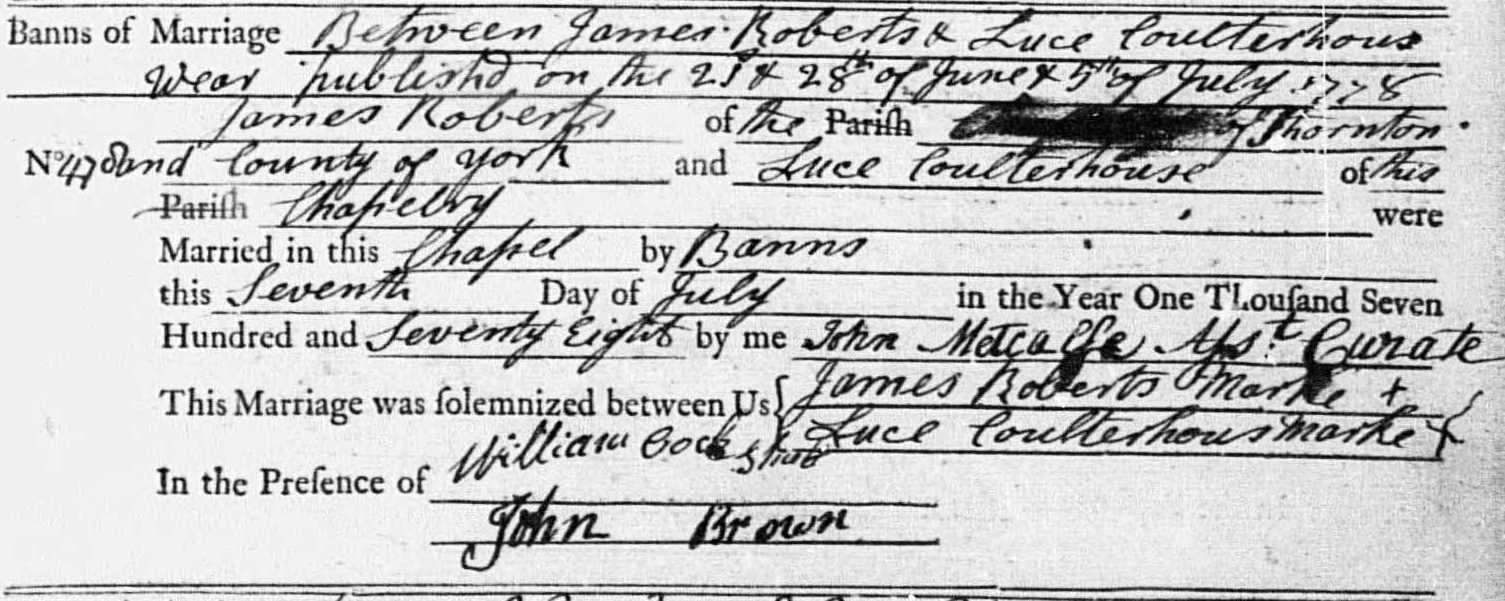 Banns of Marriage Between James Roberts & Luce Coulterhous
wear publishd on the 21st & 28th of June & 5th of July 1778
James Roberts of the Pariſh of Thornton
No 478 and County of York and Luce Coulterhouse of this
Pariſh Chapelry were
Married in this Chapel by Banns
this Seventh Day of July in the Year One Thouſand Seven
Hundred and Seventy Eight by me John Metcalfe Asst Curate
This Marriage was ſolemnized between Us { James Roberts Marke +
Luce Coulterhous Marke +
In the Preſence of William Cockshot
John Brown